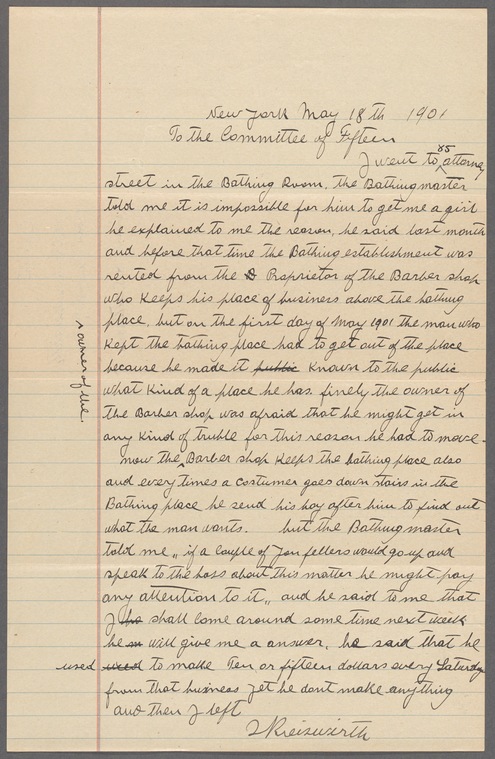 New York May 18th 1901
To the Committee of Fifteen
I went to 85 attorney
street in the Bathing Room, the Bathingmaster
told me it is impossible for him to get me a girl
he explained to me the reason, he said last month
and before that time the Bathing establishment was
rented from the Proprietor of the Barber shop
who Keeps his place of business above the bathing
place, but on the first day of May 1901 the man who
Kept the bathing place had to get out of the place
because he made it public Known to the public
what Kind of a place he has. finely the owner of
the Barber shop was afraid that he might get in
any Kind of truble for this reason he had to move.
now the ^ Barber shop Keeps the bathing place also
^ owner of the
and every times a costumer goes down stairs in the
Bathing place he send his boy after him to find out
what the man wants. but the Bathingmaster
told me „ if a couple of you fellers would go up and
speak to the boss about this matter he might pay
any attention to it „ and he said to me that
I he shall come around some time next week
he will give me a answer, he said that he
used used to make Ten or fifteen dollars every Saturday
from that business yet he dont make anything
and then I left